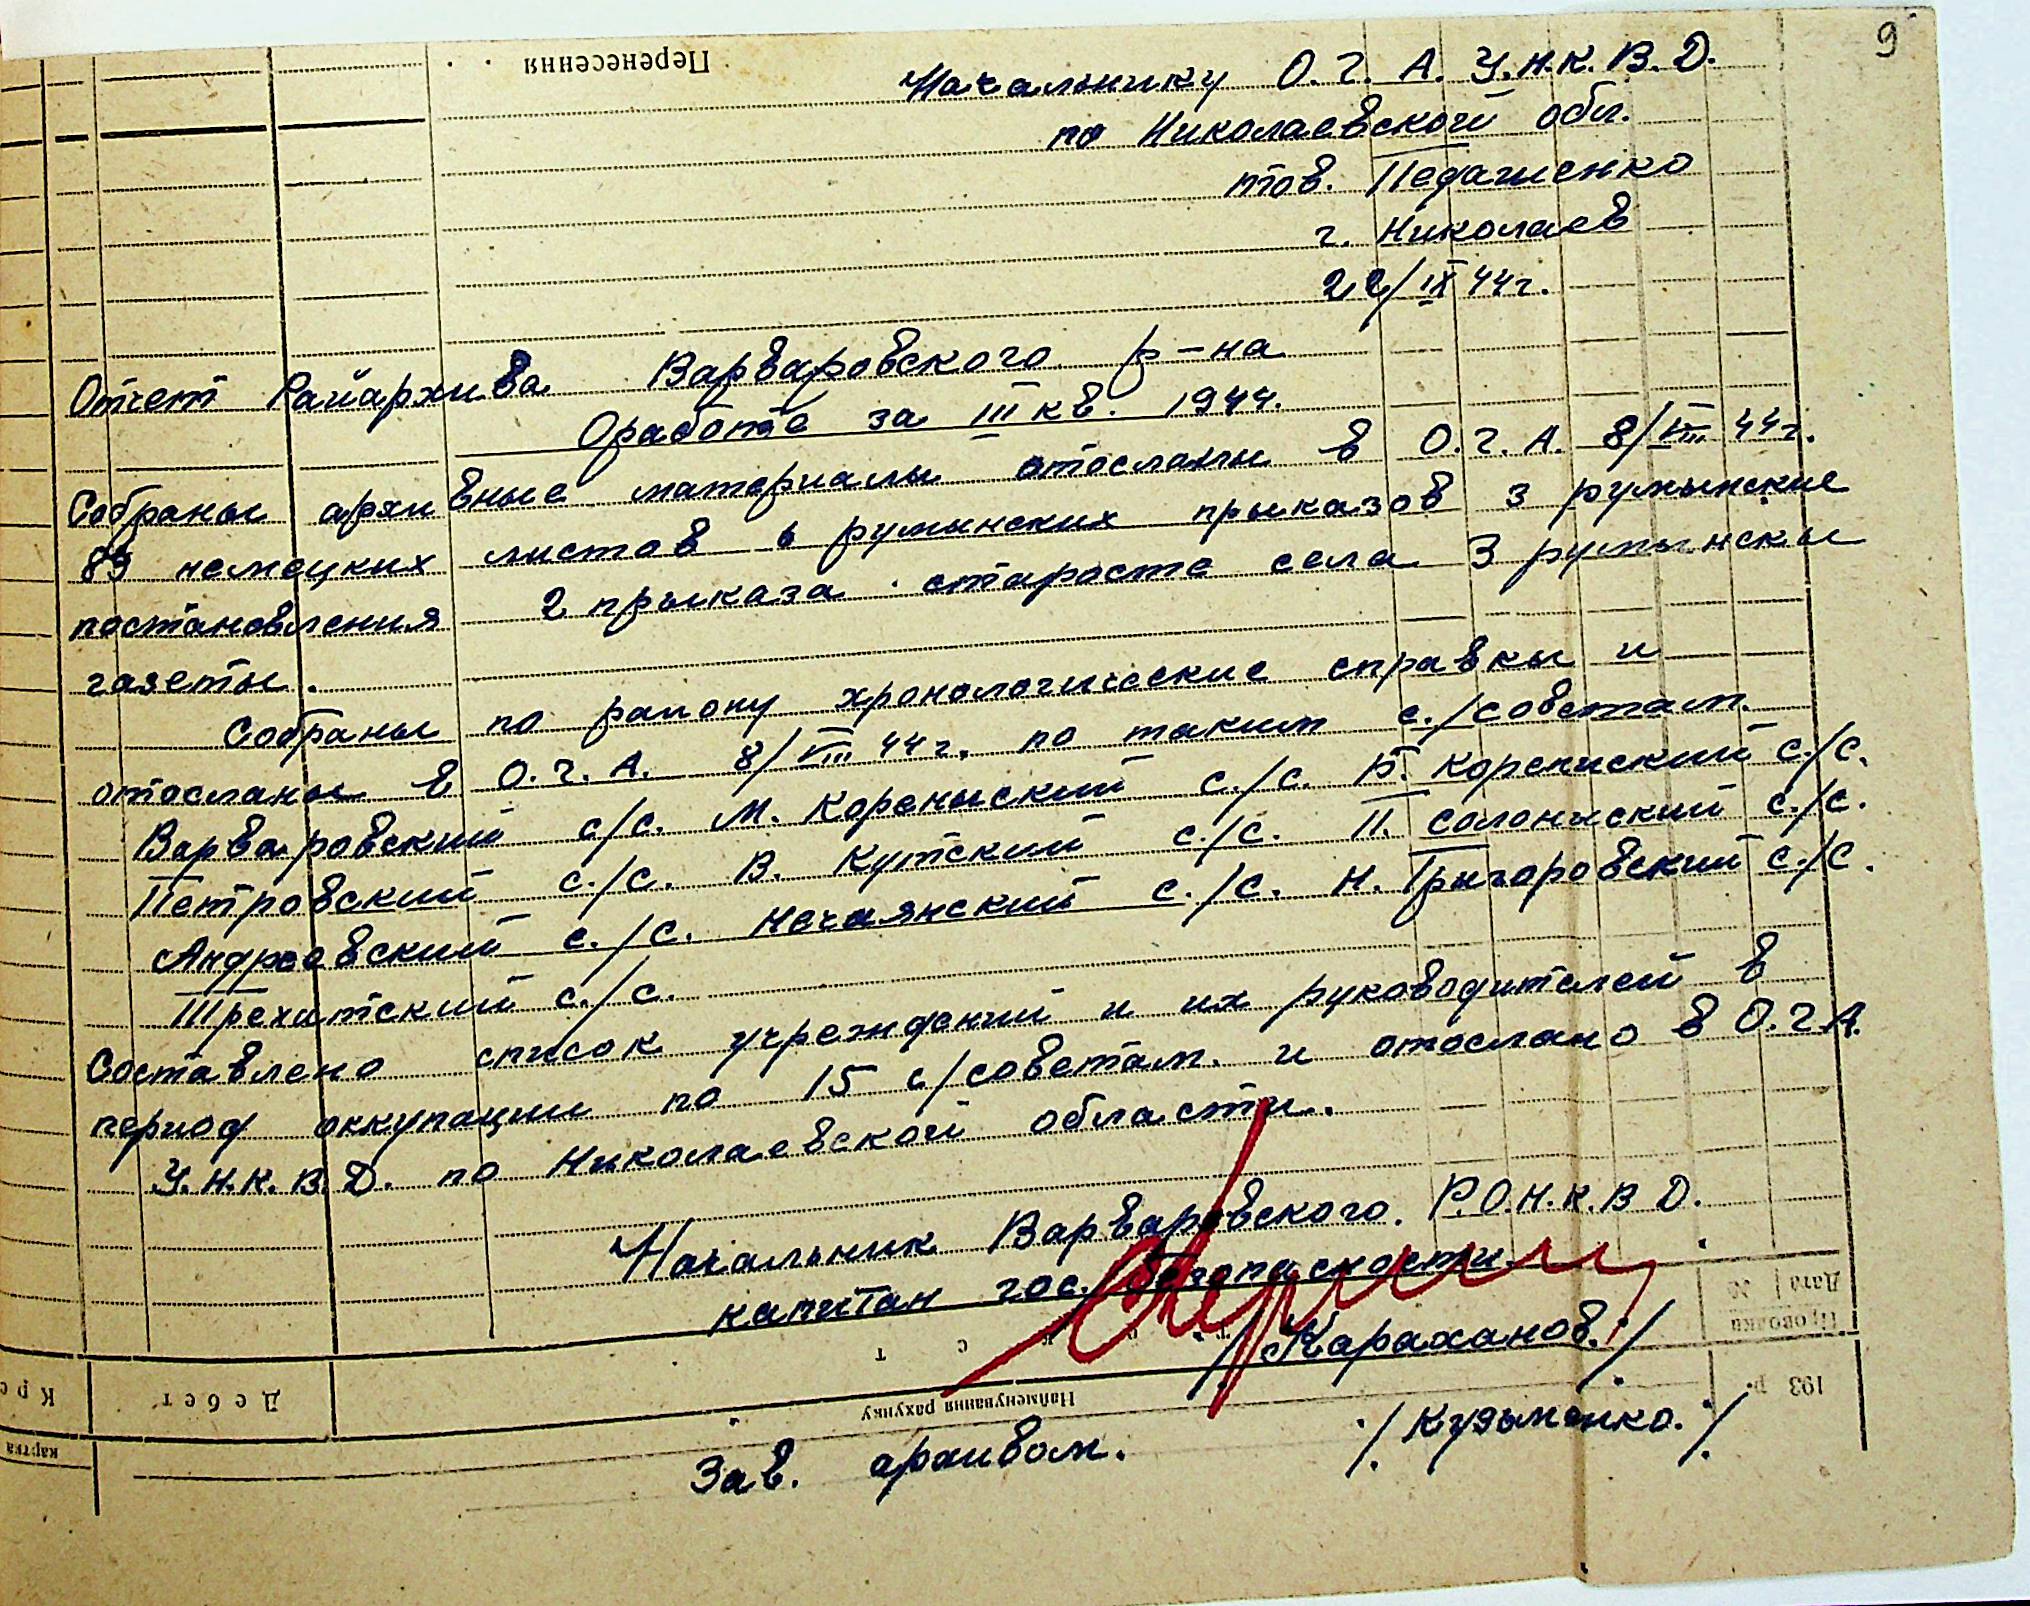 9
Перенесення
Начальнику О.Г.А. У.Н.К.В.Д.
по Николаевской обл.
тов. Педашенко
г. Николаев
22/IX 44г.
Отчет Райархива Варваровского р-на
О работе за III кв. 1944.
Собраны архивные материалы отосланы в О.Г.А. 8/VIII 44г.
89 немецких листов 6 румынских прыказов 3 румынские
постановления 2 прыказа старосте села 3 румынскы
газеты.
Собраны по району хронологические справкы и
отосланы в О.Г.А. 8/VIII 44г. по таким с./советам.
Варваровский с/с. М. Кореныский с./с. Б. Корениский с./с.
Петровский с./с. В. Кутский с./с. П. Солониский с./с.
Андреевский с./с. Нечаянский с./с. Н. Грыгоровский с./с.
Трехитский с./с.
Составлено список учреждений и их руководителей в
период оккупации по 15 с/советам. и отослано в О.Г.А.
У.Н.К.В.Д. по Николаевской области.
Начальник Варваровского. Р.О.Н.К.В.Д.
капитан гос. безопасности
/Караханов./
Зав. архивом. /Кузьменко./
Дата
Проводки
193 р.
Текст
Найменування рахунку
Дебет
Кре
картка